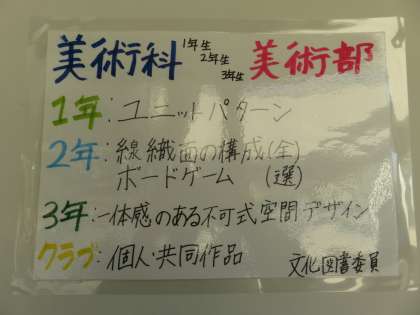 美術科 1年生 2年生 3年生 美術部
1年:ユニットパターン
2年:線織面の構成(全)
ボードゲーム (選)
3年:一体感のある不可式空間デザイン
クラブ:個人・共同作品
文化図書委員